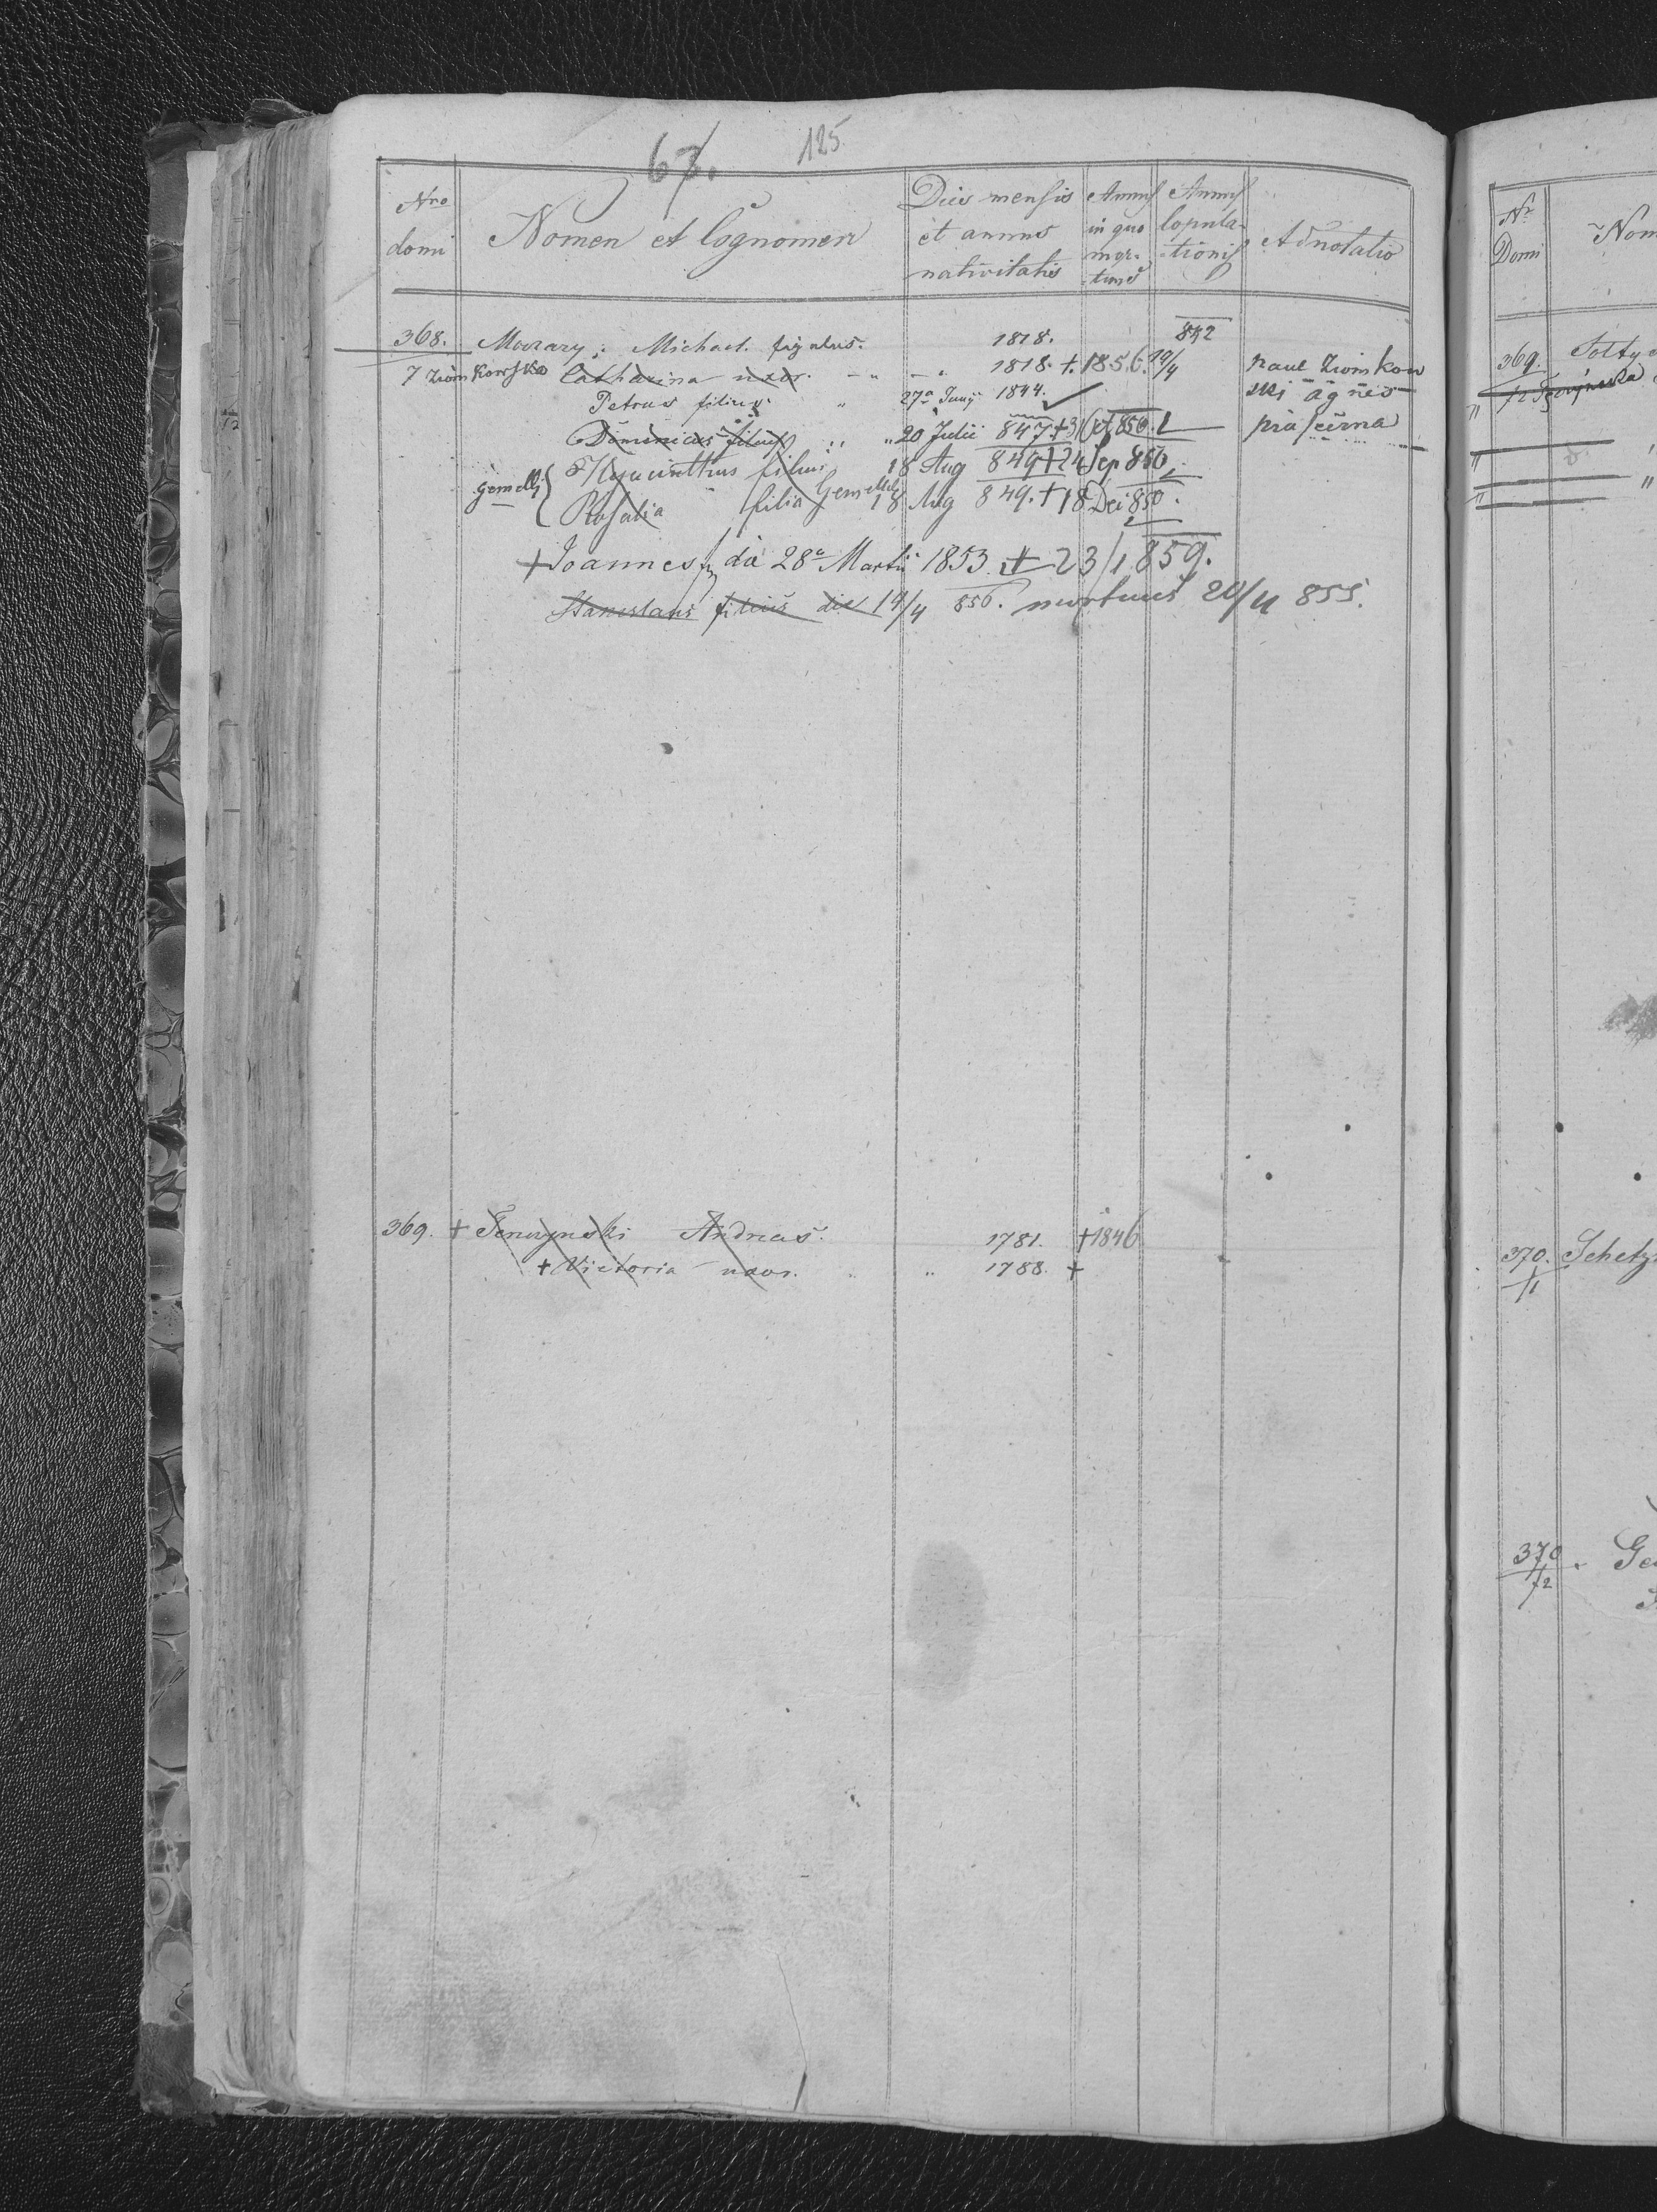 67. 125
Nro domi Nomen et Cognomen Dies mensis et annus nativitatis Annus in quo mor-tuus Annus Copula-tionis Adnotatio
368. Michael figulus. 1818. 842
7 Ziomkowska Catharina uxor. " " 1818. +. 1856. 19/4 Paul Ziomkow
Petrus filius " 27a Junij 1844. ski Agnes
Dominicus filius " " 20 Julii 847 + 31 Oct 850.
gemelli Hyacinthus filius 18 Aug 849 + 24 Sep 850
Rosalia filia Gemelli 18 Aug 849. + 18 Dec 850.
+ Joannes f. die 28a Martii 1853 + 23/1 859.
Stanislaus filius die 19/4 856. mortuus 20/4 855.
369. + Andreas. 1781. +1846
+ Victoria uxor. " " 1788. +
Nr. Domi Nom
369. Soltys
/2
"
"
370. Schetz
/1
370
/2 Ge